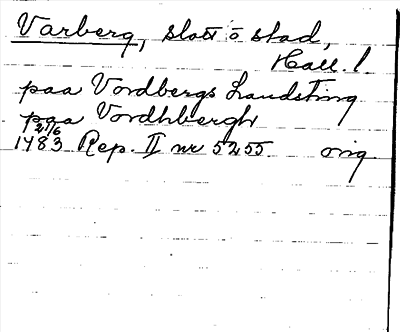 Varberg, slott o stad,
Hall. l.
paa Vordbergs Landsting
paa Vordhbergh
21/6
1483 Rep. II nr 5255 orig